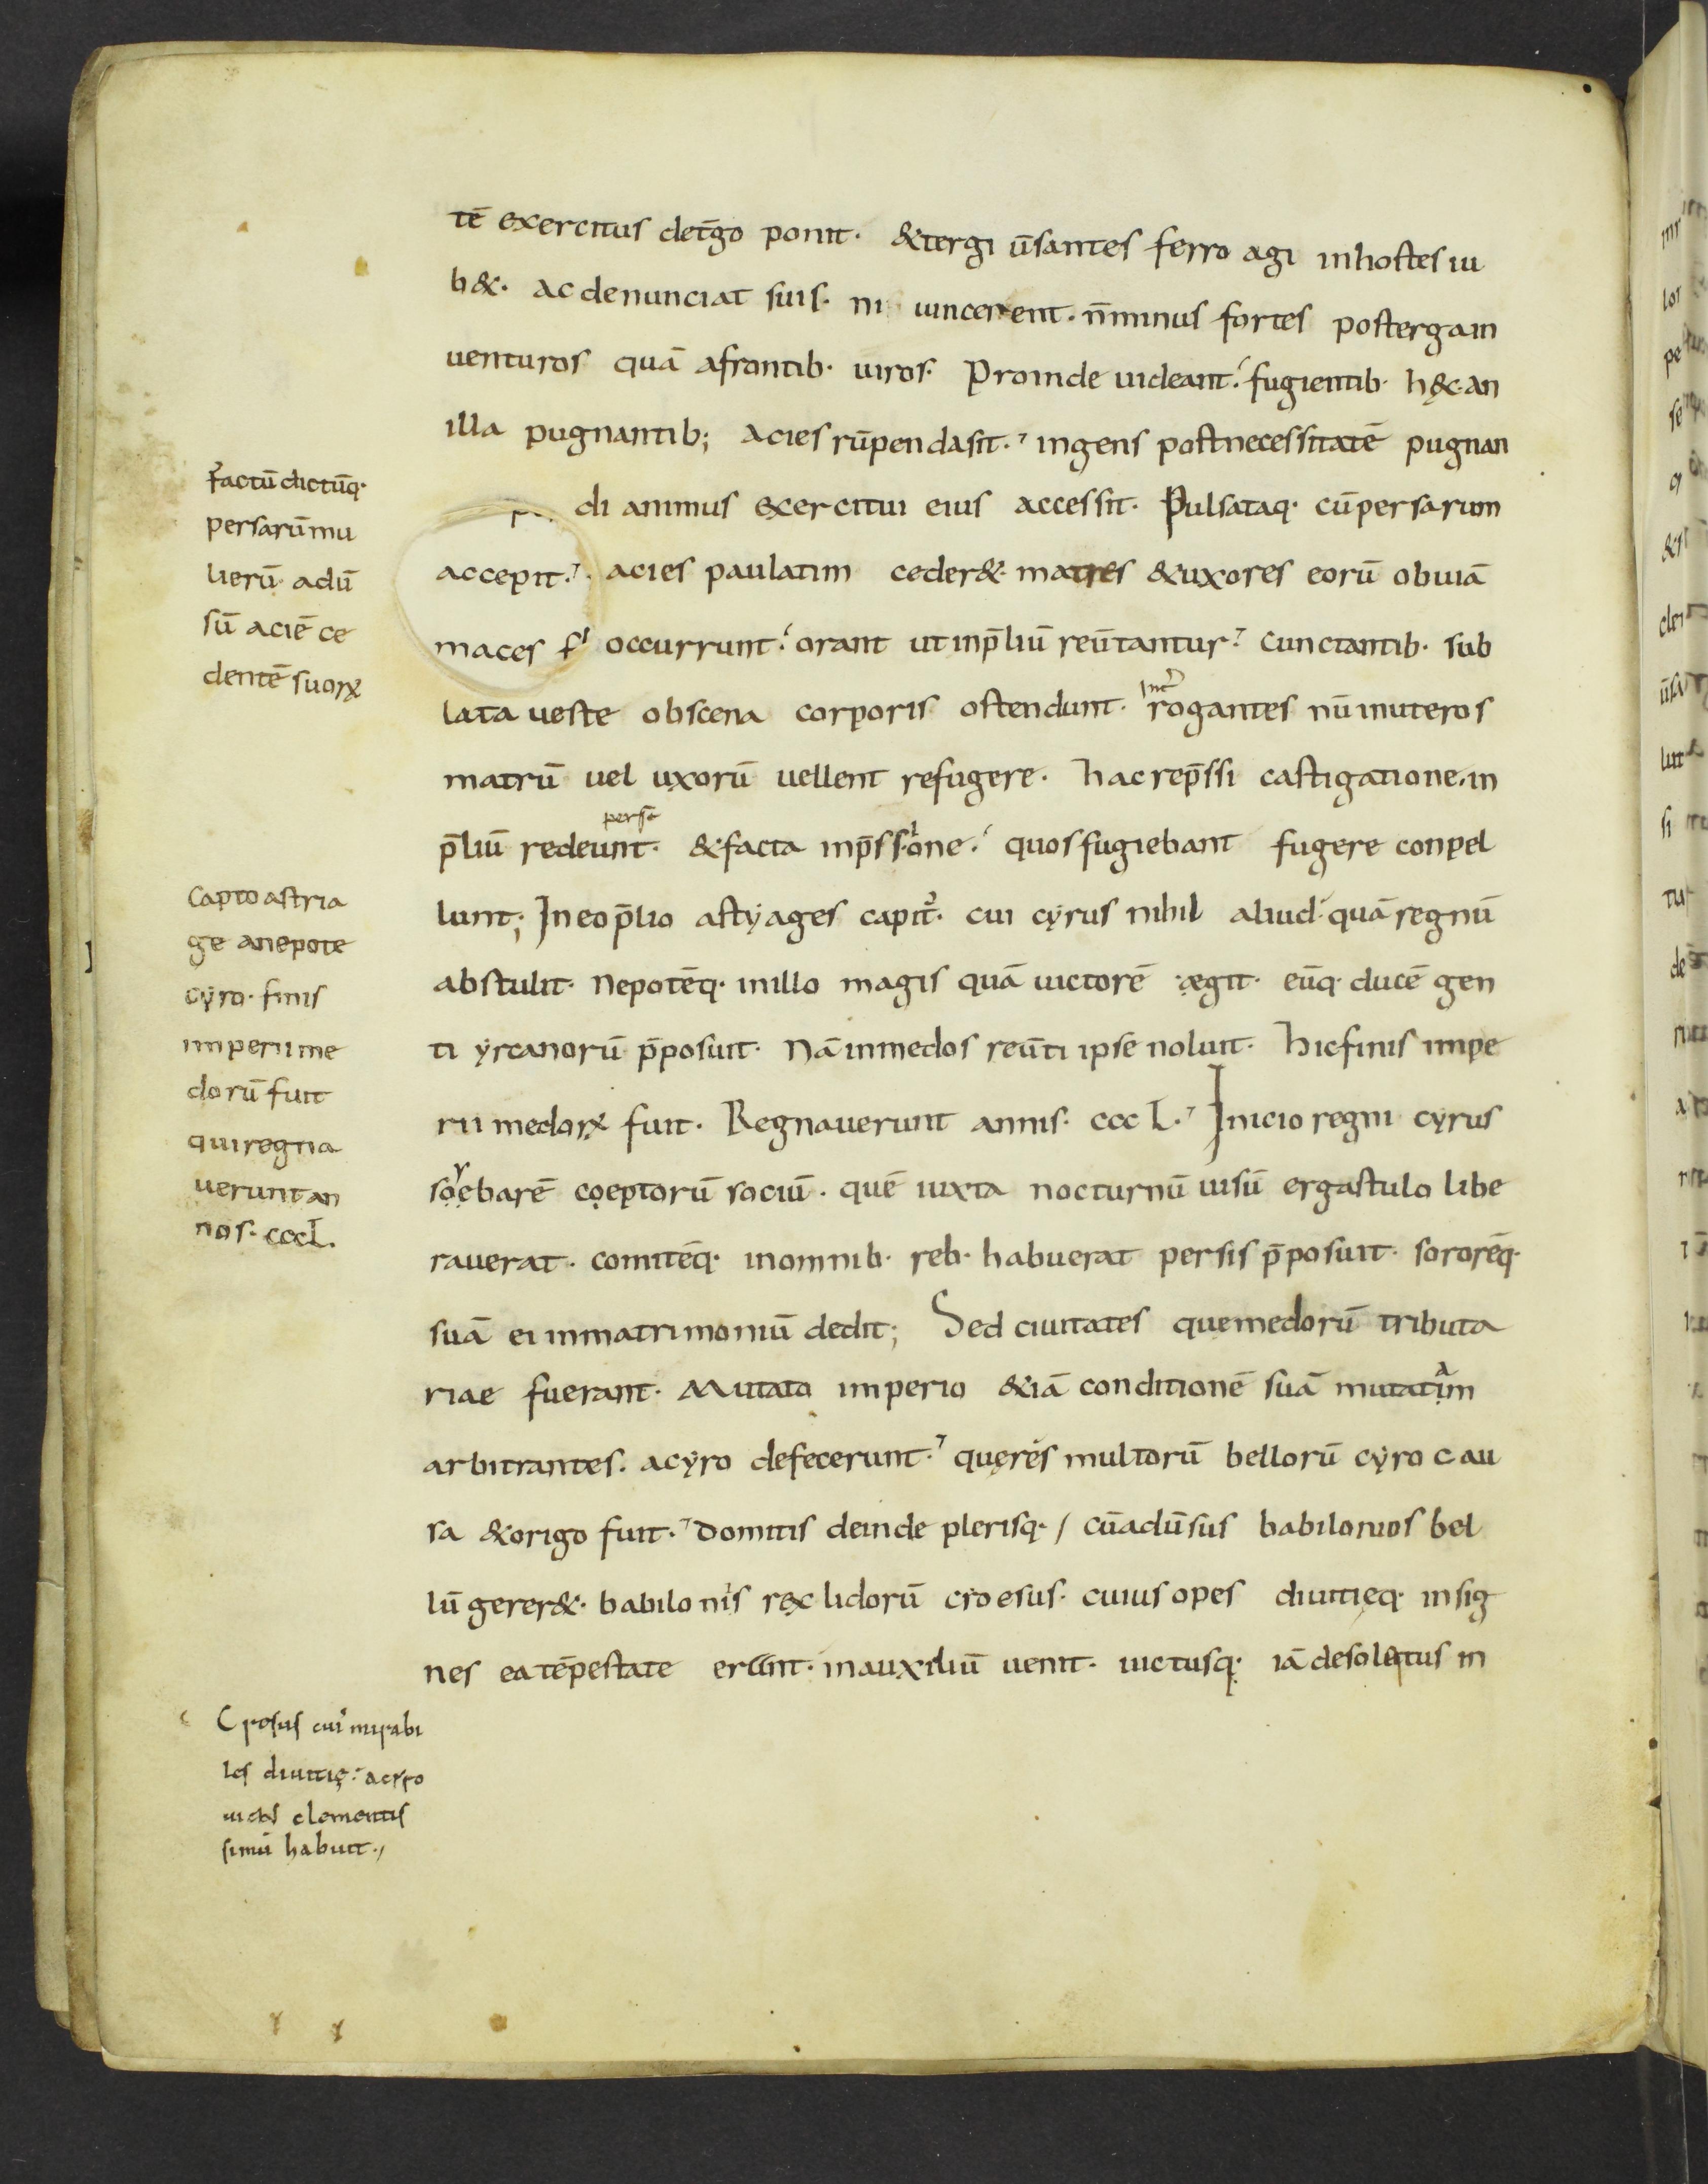 tē exercitus det̄go ponit. &tergi ūsantes ferro agi inhostes iu
b&. ac denunciat suis. ni uincerent. n̄minus fortes postergain
uenturos quā afrontib. uiros. Proinde uideant. fugientib. hęc. an
illa pugnantib; acies rūpendasit. ingens postnecessitatē pugnan
di animus exercitui eius accessit. Pulsataq. cūpersarum
accepit. acies paulatim ceder&. matres &uxores eorū obuiā
maces occurrunt. orant ut inp̄liū reūtantur. cunctantib. sub
lata ueste obscena corporis ostendunt. rogantes nūinuteros
matrū uel uxorū uellent refugere. hac rep̄ssi castigatione. in
persę
p̄liū redeunt. &facta inp̄ssione. quos fugiebant fugere conpel
lunt; In eo p̄lio astÿages capit̄. cui cÿrus nihil aliud quā regnū
abstulit. Nepotēq. inillo magis quā uictorē ægit. eūq. ducē gen
ti ÿrcanorū p̄posuit. Nā inmedos reūti ipse noluit. hicfinis impe
rii medorꝝ fuit. Regnauerunt annis. cccL. Inicio regni cÿrus
soebarē coeptorū sociū. quē iuxta nocturnū uisū ergastulo libe
rauerat. comitēq. inomnib. reb. habuerat persis p̄posuit. sororēq.
suā ei inmatrimoniū dedit; Sed ciuitates quemedorū tributa
riae fuerant. Mutato imperio &iā conditionē suā mutatam
arbitrantes. acÿro defecerunt. queręs multorū bellorū cÿro cau
sa &origo fuit. Domitis deinde plerisq. / cūadūsus babilonios bel
lū gerer&. babilonis rex lidorū croesus. cuius opes diuitięq. insig
nes ea tēpestate erant. inauxiliū uenit. uictusq. iā desolatus in
factū dictūq.
persarū mu
lierū adū
sū aciē ce
dentē suorꝝ
Capto astria
ge anepote
cÿro. finis
imperii me
dorū fuit
qui regna
uerunt an
nos. cccL.
Crosus cui mirabi
les diuitię. acyro
uictus clementis
simū habuit.